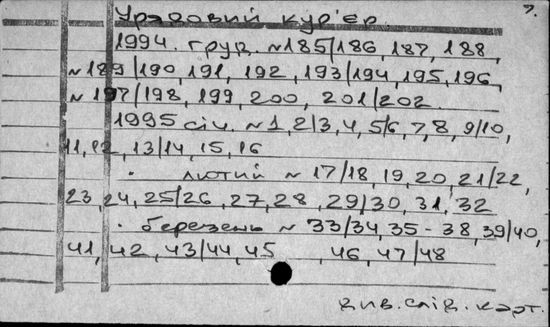 7.
Урядовий кур'єр
1994. груд. №185/186, 187, 188,
№189/190, 191, 192, 193/194, 195, 196,
№197/198, 199, 200, 201/202.
1995 січ. №1, 2/3, 4, 5/6, 7, 8, 9/10,
11, 12, 13/14, 15, 16
лютий №17/18, 19, 20, 21/22,
23, 24, 25/26, 27, 28, 29/30, 31, 32
березень №33/34, 35-38, 39/40,
41, 42, 43/44, 45, 46, 47/48
див. слід. карт.